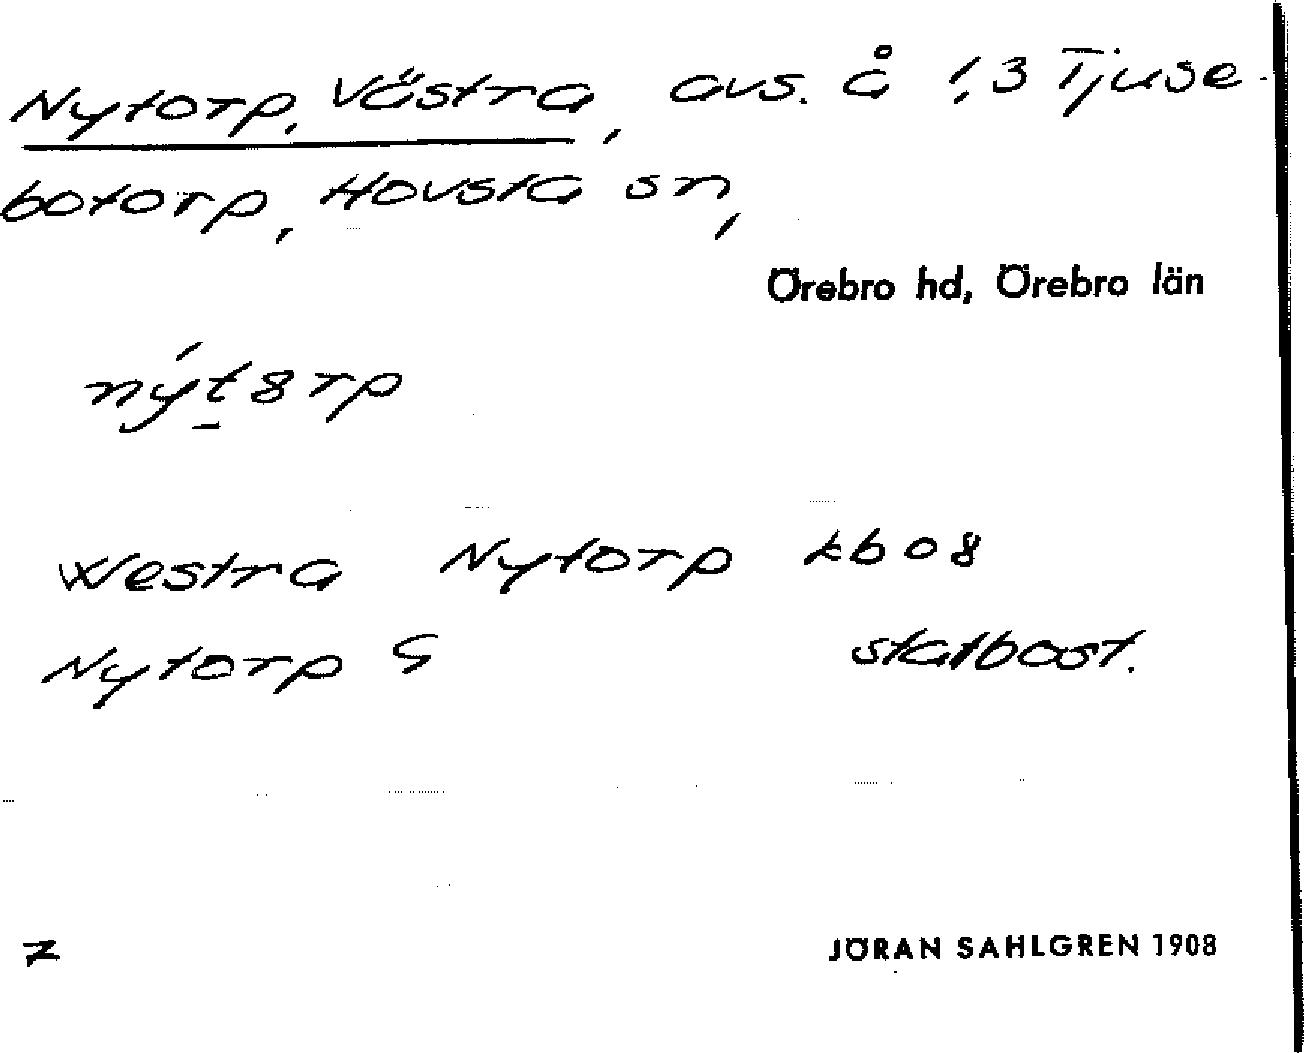 Nytorp, Västra, avs. å 1,3 Tjuse-
botorp, Hovsta sn,
Örebro hd, Örebro län
nýt8rp
Westra Nytorp kb 08
Nytorp G statbost.
JÖRAN SAHLGREN 1908